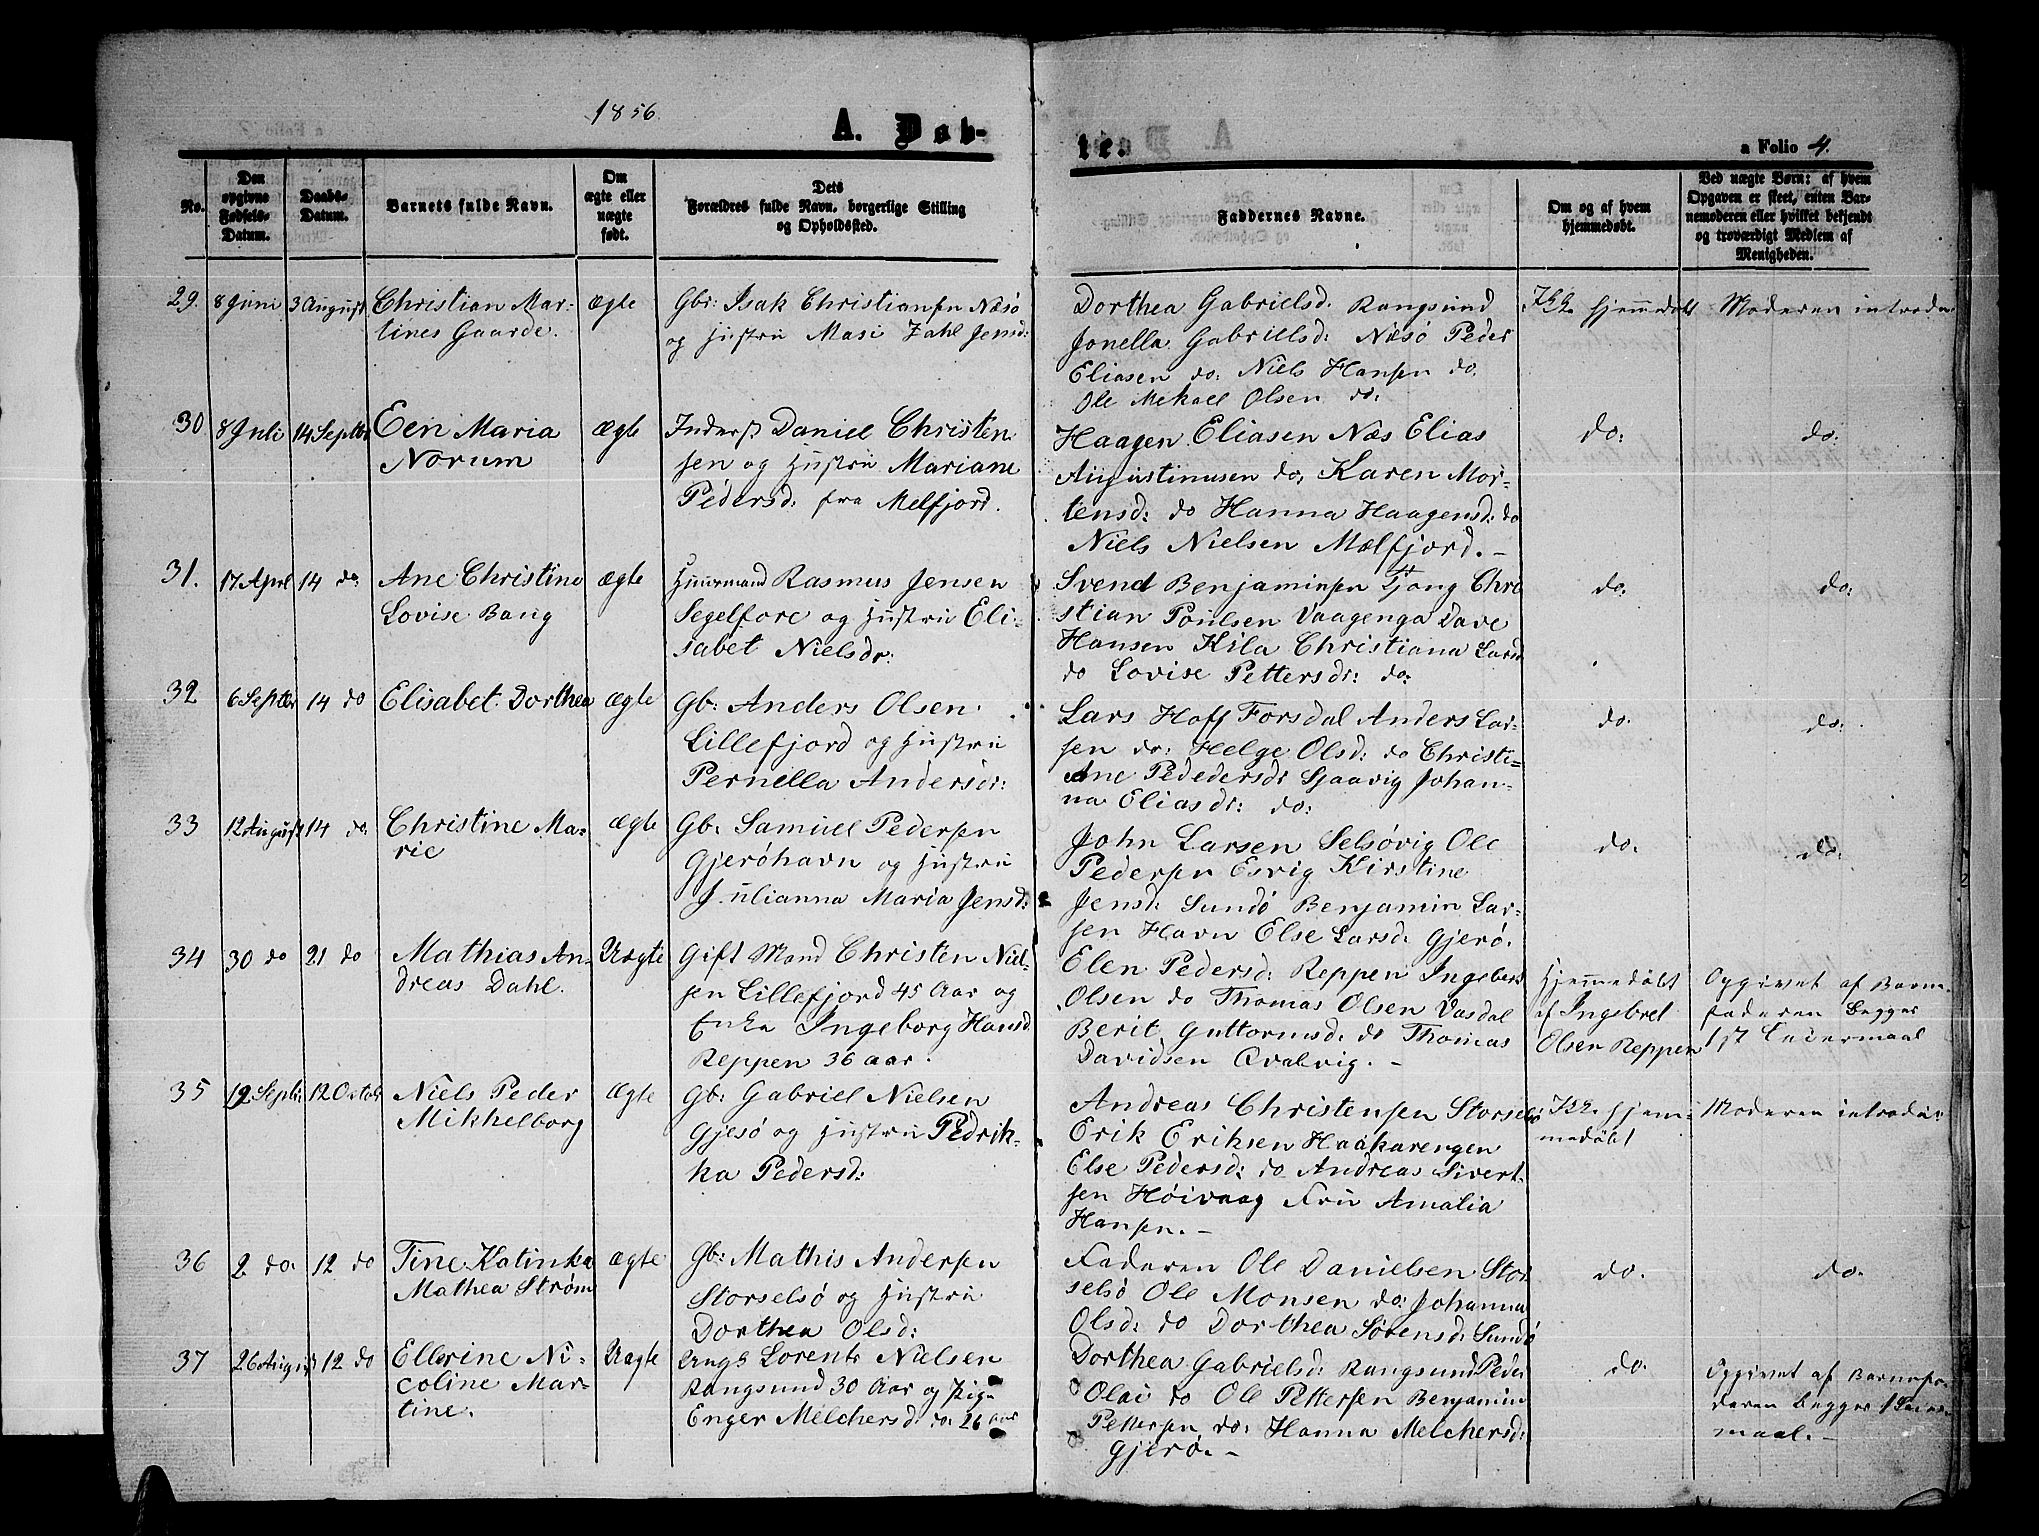 1856.
A. Døb-
te.
a Folio 4.
No.
Den
opgivne
Fødsels-
Datum.
Daabs-
Datum.
Barnets fulde Navn.
Om
ægte eller
uægte
født.
Dets
Forældres fulde Navn, borgerlige Stilling
og Opholdssted.
Faddernes Navne.
Om og af hvem
hjemmedøbt.
Ved uægte Børn: af hvem
Opgaven er skeet, enten Bar-
nemoderen eller hvilket bekjendt
og troværdigt Medlem af
Menigheden.
29. 8 Juni 3 August Christian Mar- ægte Gbr: Isak Christiansen Næsø
tines Gaarde. og Hustru Masi Zahl Jensd:
Dorthea Gabrielsd: Rangsund
Jonella Gabrielsd: Næsø Peder
Eliasen do: Niels Hansen do,
Ole Mekael Olsen do:
Ikke hjemmedøbt
Moderen introdu
30 8 Juli 14 Septbr Een Maria ægte Inderst Daniel Christen
Norum sen og Hustru Mariane
Pedersd: fra Melfjord.
Haagen Eliasen Næs Elias
Augustinusen do, Karen Mor-
tensd: do Hanna Haagensd: do
Niels Nielsen Mælfjord. -
do:
do:
31. 17 April 14 do: Ane Christine ægte Huusmand Rasmus Jensen
Lovise Bang Segelfore og Hustru Eli-
sabet Nielsdr:
Svend Benjaminsen Tjong Chri
stian Poulsen Vaagenga Dave
Hansen Kila Christiana Larsd
do Lovise Pettersdr: do:
do:
do:
32 6 Septbr 14 do Elisabet Dorthea ægte Gb: Anders Olsen
Lillefjord og Hustru
Pernella Andersdr:
Lars Hoff Forsdal Anders Lar-
sen do: Helge Olsd: do Christi=
Ane Pededersdr Sjaavig Johan-
na Eliasdr: do:
do:
do:
33 12 August 14 do: Christine Ma- ægte Gb: Samuel Pedersen
rie Gjerøhavn og Hustru
Julianna Maria Jensd:
John Larsen Selsøvig Ole
Pedersen Esvig Kirstine
Jensd: Sundø Benjamin Lar-
sen Havn Else Larsd: Gjerø.
do.
do:
34 30 do 21 do Mathias An- Uægte Gift Mand Christen Niel-
dreas Dahl. sen Lillefjord 45 Aar og
Enke Ingeborg Hansd
Reppen 36 aar.
Elen Pedersd: Reppen Ingebert
Olsen do Thomas Olsen Vasdal
Berit Guttormsd: do Thomas
Davidsen Qvalvig. -
Hjemmedøbt
af Ingebret
Olsen Reppen
Opgivet af Barne-
faderen begges
1ste Leiermaal
35 12 Septbr: 12 Octobr Niels Peder ægte Gb: Gabriel Nielsen
Mikkelborg Gjesø og Hustru Pedrik-
ka Pedersd:
Andreas Christensen Storselsø
Erik Eriksen Haakarengen
Else Pedersd: do Andreas Sivert-
sen Høivaag Fru Amalia
Hansen. -
Ikke hjem-
medøbt
Moderen introdu:
36 2 do. 12 do Tine Katinka ægte Gb: Mathis Andersen
Mathea Strøm Storselsø og Hustru
Dorthea Olsd:
Faderen Ole Danielsen Stor
selsø Ole Monsen do: Johanna
Olsd: do Dorthea Sørensd: Sundø
do.
do.
37 26 August 12 do Ellerine Ni- Uægte Ungk Lorents Nielsen
coline Mar- Rangsund 30 Aar og Pige
tine. Enger Melchersd: do: 26 aar
Dorthea Gabrielsd: Rangsund Peder
Olai do Ole Pettersen Benjamin
Pettersen do: Hanna Melchersd:
Gjerø. -
do.
Opgivet af Barnefa-
deren begges 1 Leier-
maal. -